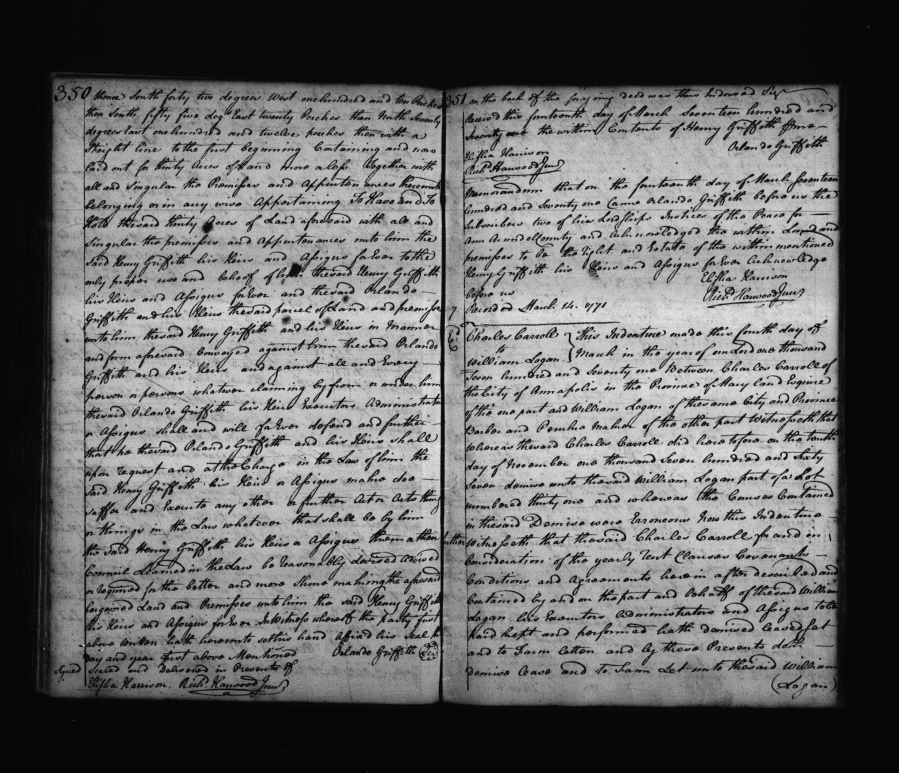 350 thence South forty two degrees West one hundred and ten Perches
then South fifty five deg. East twenty Perches then North Seventy
degrees East one hundred and twelve perches then with a
straight line to the first beginning Containing and now
laid out for thirty Acres of Land more or less Together with
all and Singular the Premisses and Appurtenances thereunto
belonging or in any wise Appertaining To Have and To
Hold the said thirty Acres of Land aforesaid with all and
Singular the premisses and Appurtenances unto him the
said Henry Griffith his Heirs and Assigns forEver to the
only proper use and behoof of him the said Henry Griffith
his Heirs and Assigns forEver and the said Orlando
Griffith and his Heirs the said parcel of Land and premisses
unto him the said Henry Griffith and his Heirs in Manner
and form aforesaid Conveyed against him the said Orlando
Griffith and his Heirs and against all and Every
person or persons whatever claiming by from or under him
the said Orlando Griffith his Heirs Executors Administrators
or Assigns shall and will forEver defend and further
that he the said Orlando Griffith and his Heirs shall
upon request and at the Charge in the Law of him the
said Henry Griffith his Heirs or Assigns make doe
suffer and Execute any other or further Act or Acts thing
or things in the Law whatever that shall be by him
the said Henry Griffith his Heirs or Assigns them or their
Council Learned in the Law be reasonably devised advised
or required for the better and more sure making the aforesaid
bargained Land and Premisses unto him the said Henry Griffith
his Heirs and Assigns forEver In Witness whereof the party first
above written hath hereunto set his hand Affixed his Seal the
day and year first above Mentioned Orlando Griffith
Signed Sealed and Delivered in Presents of
Elisha Harrison. Richd. Harwood Junr.
351 on the back of the foregoing deed was thus Endorsed Viz
Received this fourteenth day of March Seventeen hundred and
Seventy one the within Contents of Henry Griffith
Elisha Harrison Orlando Griffith
Richd Harwood Junr
Memorandum that on this fourteenth day of March Seventeen
hundred and Seventy one Came Orlando Griffith before us the
Subscribers two of his Lordships Justices of the Peace for
Ann Arundel County and Acknowledged the within Land and
premisses to be the Right and Estate of the within mentioned
Henry Griffith his Heirs and Assigns forEver Acknowledge
before us Elisha Harrison
Richd Harwood Junr
Received March 14. 1771
Charles Carroll This Indenture made this fourth day of
to March in the year of our Lord one thousand
William Logan
Seven hundred and Seventy one Between Charles Carroll of
the City of Annapolis in the Province of Mary land Esquire
of the one part and William Logan of the same City and Province
Barber and Peruke Maker of the other part Witnesseth that
whereas the said Charles Carroll did heretofore on the tenth
day of November one thousand Seven hundred and Sixty
Seven demise unto the said William Logan part of a Lot
numbered thirty one and whereas the Courses Contained
in the said Demise were Erroneous Now this Indenture
further Witnesseth that the said Charles Carroll for and in
Consideration of the yearly Rent Clauses Covenants
Conditions and Agreements herein after described and
Contained by and on the part and behalf of the said William
Logan his Executors Administrators and Assigns to be
paid kept and performed hath demised Leased Set
and to Farm Letten and by these Presents doth
demise Lease and to Farm Let unto the said William
(Logan)